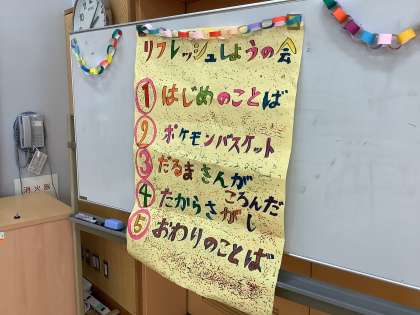 リフレッシュしようの会
① はじめのことば
② ポケモンバスケット
③ だるまさんが
ころんだ
④ たからさがし
⑤ おわりのことば
消火器